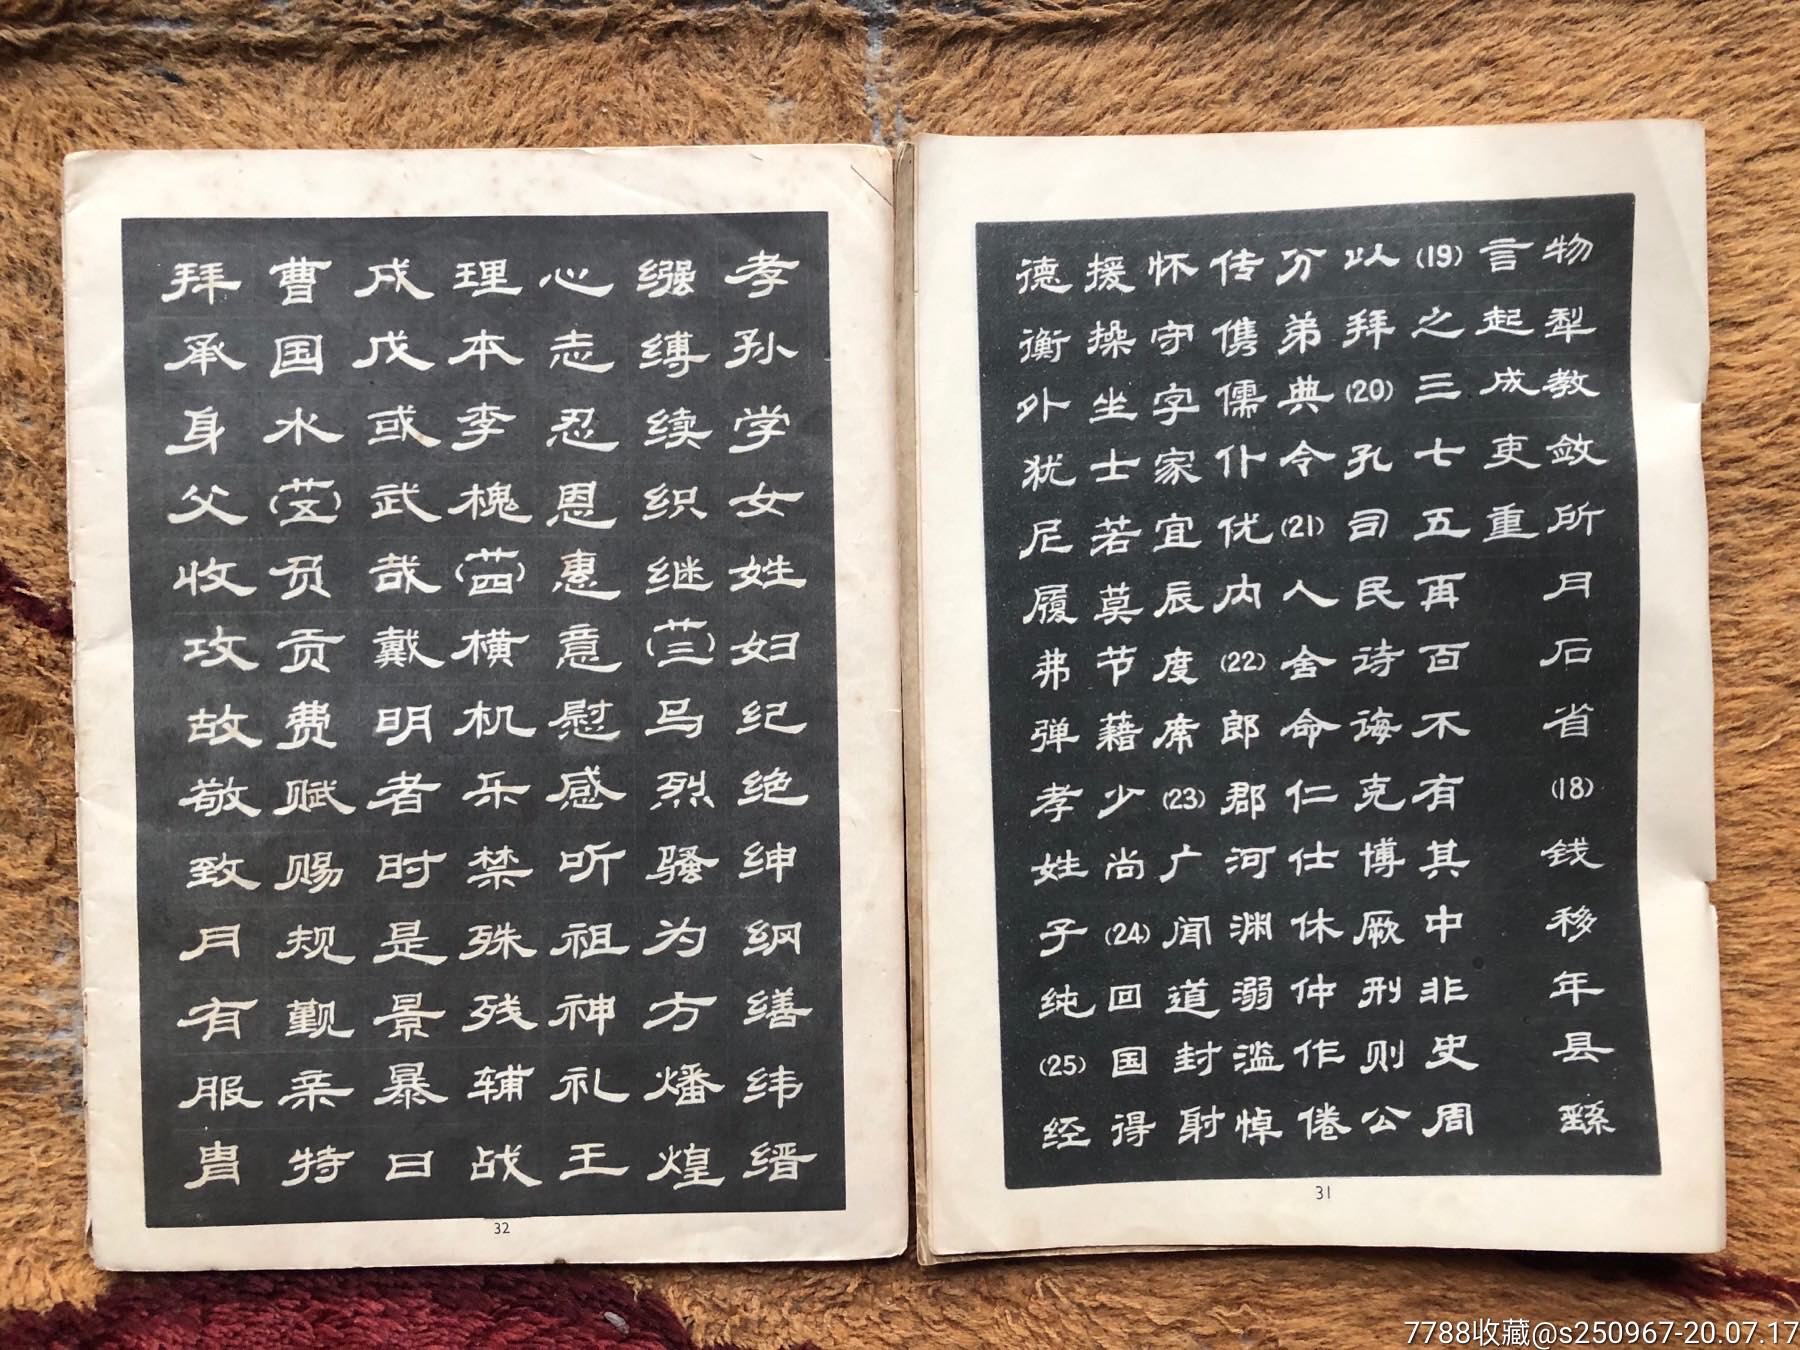 物犁教敛所月石省(18)钱移年县繇
言起成吏重
(19)之三七五再百不有其中非史周
以拜(20)孔司民诗诲克博厥刑则公
分弟典令(21)人舍命仁仕休仲作倦
传儁儒仆优内(22)郎郡河渊溺滥悼
怀守字家宜辰度席(23)广闻道封射
援操坐士若莫节藉少尚(24)回国得
德衡外犹尼履弗弹孝姓子纯(25)经
31
孝孙学女姓妇纪绝绅纲缮纬缙
缚续织继(廿三)马烈骚为方燔煌
心志忍恩惠意慰感听祖神礼王
理本李槐(廿四)横机乐禁殊残辅战
戍戊或武哉戴明者时是景暴日
曹国水(廿五)负贡费赋赐规觐亲特
拜承身父收攻故敬致月有服胄
32
7788收藏@s250967-20.07.17